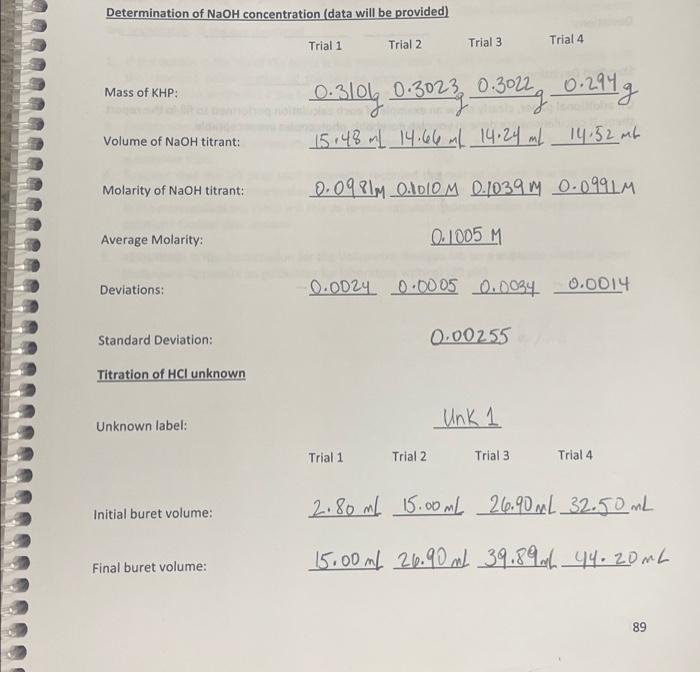 Determination of NaOH concentration (data will be provided)
Trial 1 Trial 2 Trial 3 Trial 4
Mass of KHP: 0.3101g 0.3023g 0.3022g 0.294g
Volume of NaOH titrant: 15.48 mL 14.66 mL 14.24 mL 14.52 mL
Molarity of NaOH titrant: 0.0981M 0.1010M 0.1039M 0.0991M
Average Molarity: 0.1005 M
Deviations: 0.0024 0.0005 0.0034 0.0014
Standard Deviation: 0.00255
Titration of HCl unknown
Unknown label: Unk 1
Trial 1 Trial 2 Trial 3 Trial 4
Initial buret volume: 2.80 mL 15.00 mL 26.90 mL 32.50 mL
Final buret volume: 15.00 mL 26.90 mL 39.89 mL 44.20 mL
89